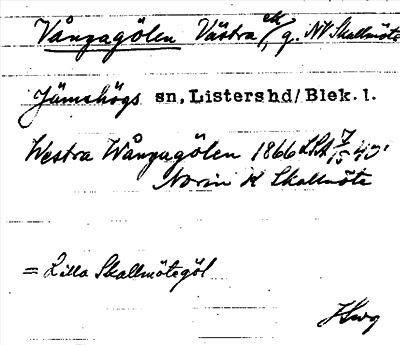 Vångagölen Västra g. NV Skallmöte
Jämshögs sn, Listers hd/ Blek. l.
Westra Wångagölen 1866 LSA
Norin K Skallmöte
= Lilla Skallmötegöl